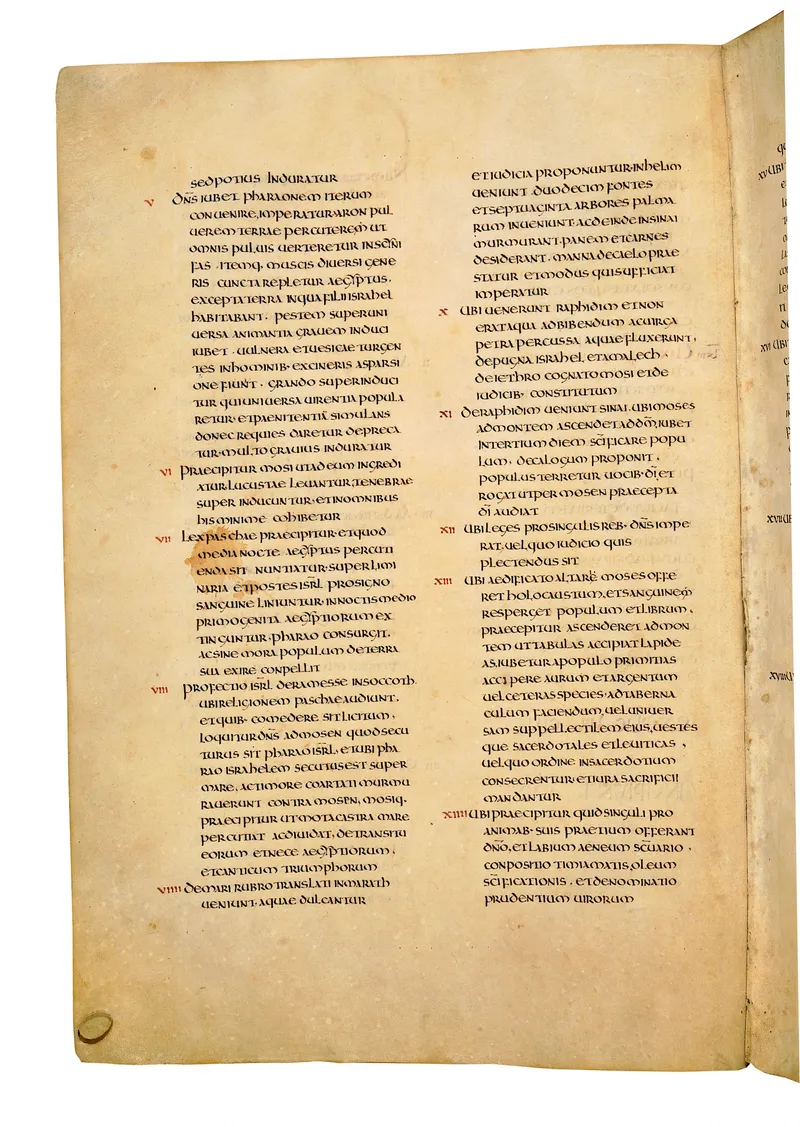 sed potius induratur
v dn̄s iubet pharaonem iterum
conuenire, imperatur aron pul
uerem terrae percuterem ut
omnis puluis uerteretur in scini
fas · itemq· muscis diuersi gene
ris cuncta repletur aegyptus ·
excepta terra in qua filii israhel
habitabant · pestem super uni
uersa animantia grauem induci
iubet · uulnera et uesicae turgen
tes in hominib· ex cineris asparsi
one fiunt · grando superinduci
tur qui uniuersa uirentia popula
retur · et paenitentiā simulans
donec requies daretur depreca
tur · multo grauius induratur
vi praecipitur mosi ut ad eum ingredi
atur lucustae leuantur, tenebrae
super inducuntur · et in omnibus
his minime cohibetur
vii lex paschae praecipitur · et quod
media nocte aegyptus percuti
enda sit nuntiatur · super limi
naria et postes isr̄l pro signo
sanguine liniuntur · in noctis medio
primogenita aegyptiorum ex
tinguntur · pharao consurgit ·
ac sine mora populum de terra
sua exire conpellit
viii profectio isr̄l de ramesse in soccoth ·
ubi religionem paschae audiunt ·
et quib· comedere sit licitum ·
loquitur dn̄s ad mosen quod secu
turus sit pharao isr̄l, et ubi pha
rao israhelem secutus est super
mare, ac timore coartati murmu
rauerunt contra mosen, mosiq·
praecipitur ut mota castra mare
percutiat ac diuidat, de transitu
eorum et nece aegyptiorum ·
et canticum triumphorum
viiii de mari rubro translati in marath
ueniunt · aquae dulcantur
et iudicia proponuntur · in helim
ueniunt duodecim fontes
et septuaginta arbores palma
rum inueniunt · ac deinde in sinai
murmurant · panem et carnes
desiderant · manna de caelo prae
statur et modus qui sufficiat
imperatur
x ubi uenerunt raphidim et non
erat aqua ad bibendum ac uirga
petra percussa aquae fluxerunt ·
de pugna israhel et amalech ·
de iethro cognato mosi et de
iudicib· constitutum
xi de raphidim ueniunt sinai · ubi moses
ad montem ascendet ad dn̄m, iubet
in tertium diem sc̄ificare popu
lum · decalogum proponit ·
populus terretur uocib· dī · et
rogat ut per mosen praecepta
dī audiat
xii ubi leges pro singulis reb· dn̄s impe
rat, uel quo iudicio quis
plectendus sit
xiii ubi aedificato altare moses offe
ret holocaustum, et sanguinem
resperget populum et librum ·
praecepitur ascenderet ad mon
tem ut tabulas accipiat lapide
as, iubetur a populo primitias
accipere aurum et argentum
uel ceteras species · ad taberna
culum faciendum, uel uniuer
sam suppellectilem eius, uestes
que sacerdotales et leuiticas ,
uel quo ordine in sacerdotium
consecrentur · et iura sacrificii
mandantur
xiiii ubi praecipitur quid singuli pro
animab· suis praetium offerant
dn̄o, et labium aeneum sc̄uario ·
conpositio timiamatis, oleum
sc̄ificationis · et denominatio
prudentium uirorum
xv ubi
xvi ubi
xvii ub
xviii u